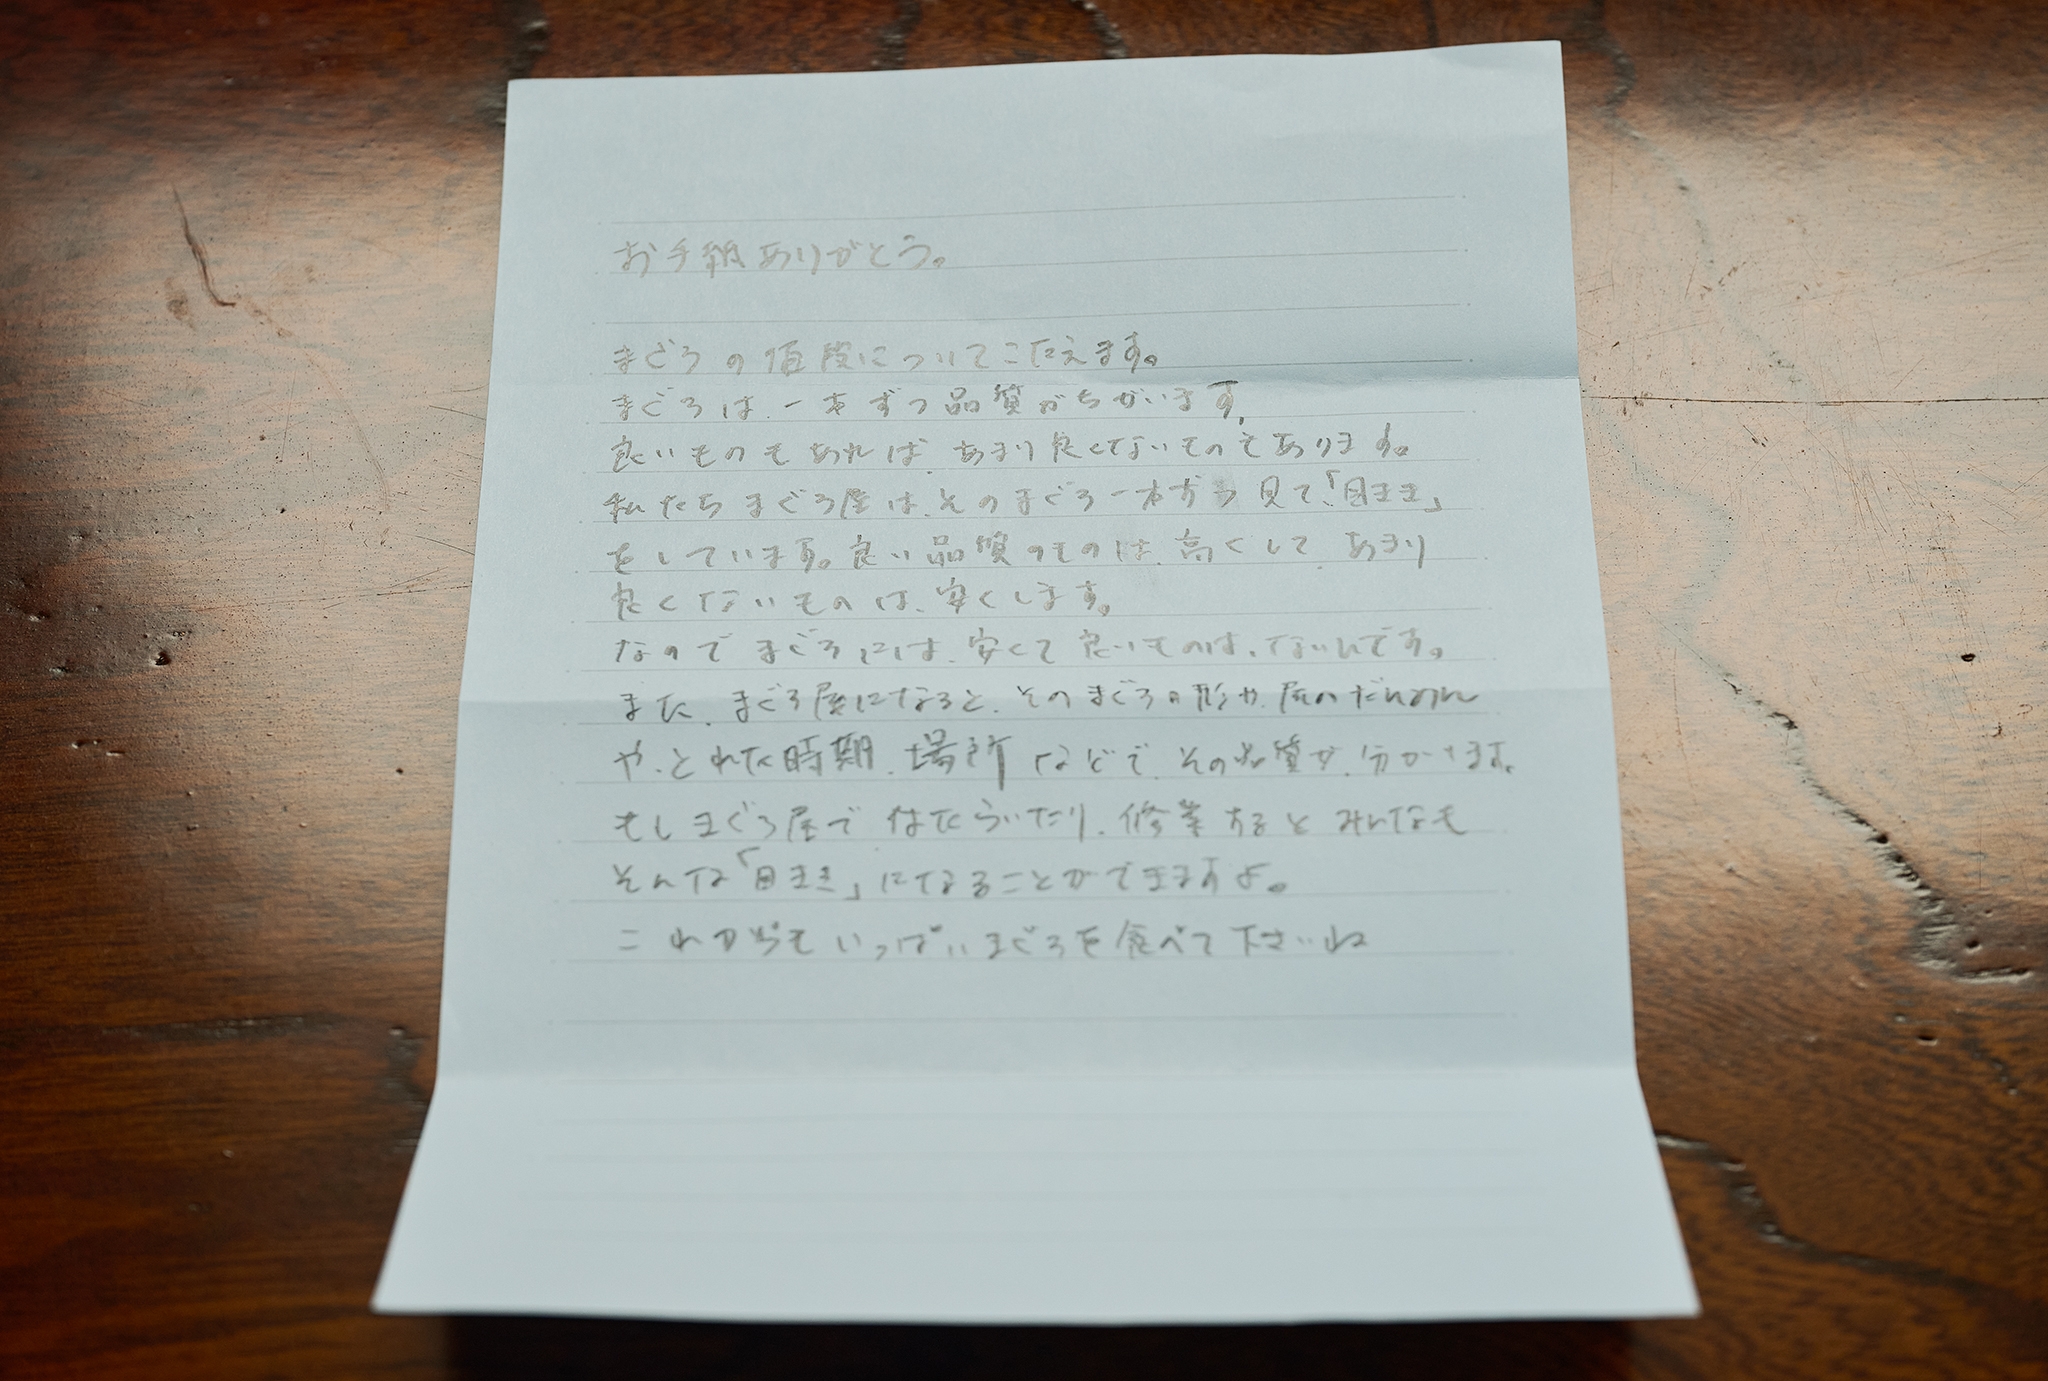 お手紙ありがとう。
まぐろの値段についてこたえます。
まぐろは、一本ずつ品質がちがいます。
良いものもあれば、あまり良くないものもあります。
私たちまぐろ屋は、そのまぐろ一本ずつ見て、「目きき」
をしています。良い品質のものは、高くして、あまり
良くないものは、安くします。
なのでまぐろには、安くて良いものは、ないんです。
また、まぐろ屋になると、そのまぐろの形や、尾のだんめん
や、とれた時期、場所などで、その品質が、分かります。
もしまぐろ屋ではたらいたり、修業するとみんなも
そんな「目きき」になることができますよ。
これからもいっぱいまぐろを食べて下さいね